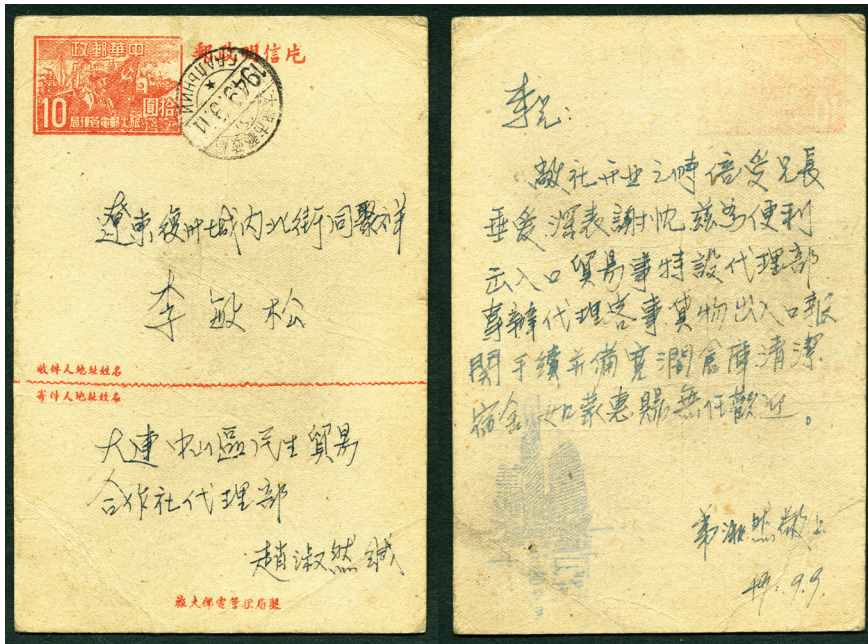 中華郵政
郵政明信片
10
拾圓
旅大郵電管理局
1949.9.11
遼東復州城内北街同聚祥
李敏松
收件人地址姓名
寄件人地址姓名
大連中山區民生貿易
合作社代理部
趙淑然緘
旅大郵電管理局製
李兄：
敝社开业之時倍受兄長
垂爱深表謝忱兹為便利
出入口貿易事特設代理部
專辦代理客事貨物出入口報
関手續并備寬濶倉庫清潔
宿舍如蒙惠賜無任歡迎。
弟淑然敬上
9.9.